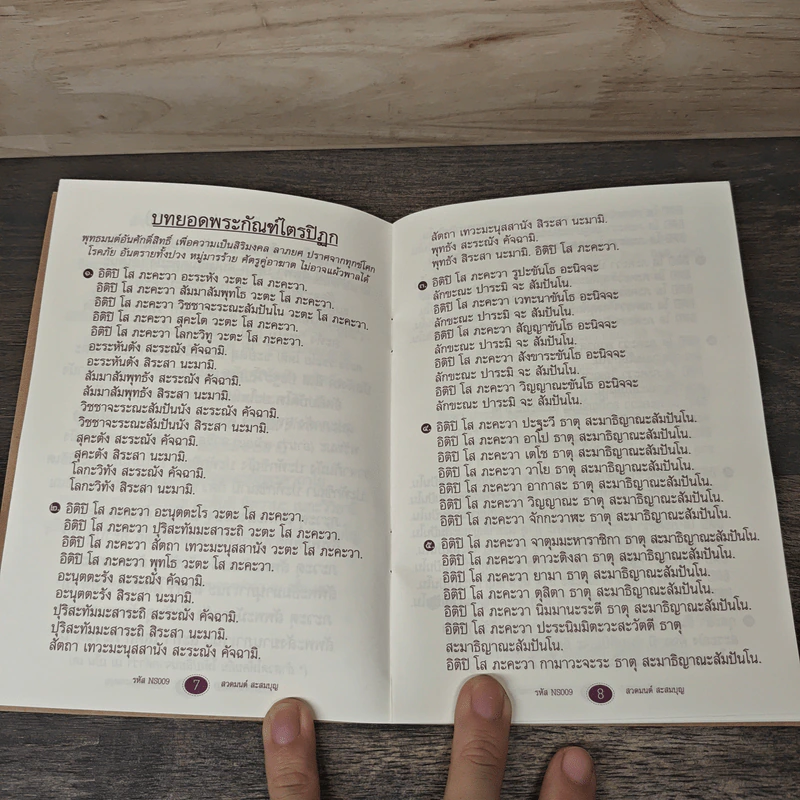 บทยอดพระกัณฑ์ไตรปิฎก
พุทธมนต์อันศักดิ์สิทธิ์ เพื่อความเป็นสิริมงคล ลาภยศ ปราศจากทุกข์โศก
โรคภัย อันตรายทั้งปวง หมู่มารร้าย ศัตรูคู่อาฆาต ไม่อาจแผ้วพาลได้
๑. อิติปิ โส ภะคะวา อะระหัง วะตะ โส ภะคะวา.
อิติปิ โส ภะคะวา สัมมาสัมพุทโธ วะตะ โส ภะคะวา.
อิติปิ โส ภะคะวา วิชชาจะระณะสัมปันโน วะตะ โส ภะคะวา.
อิติปิ โส ภะคะวา สุคะโต วะตะ โส ภะคะวา.
อิติปิ โส ภะคะวา โลกะวิทู วะตะ โส ภะคะวา.
อะระหันตัง สะระณัง คัจฉามิ.
อะระหันตัง สิระสา นะมามิ.
สัมมาสัมพุทธัง สะระณัง คัจฉามิ.
สัมมาสัมพุทธัง สิระสา นะมามิ.
วิชชาจะระณะสัมปันนัง สะระณัง คัจฉามิ.
วิชชาจะระณะสัมปันนัง สิระสา นะมามิ.
สุคะตัง สะระณัง คัจฉามิ.
สุคะตัง สิระสา นะมามิ.
โลกะวิทัง สะระณัง คัจฉามิ.
โลกะวิทัง สิระสา นะมามิ.
๒. อิติปิ โส ภะคะวา อะนุตตะโร วะตะ โส ภะคะวา.
อิติปิ โส ภะคะวา ปุริสะทัมมะสาระถิ วะตะ โส ภะคะวา.
อิติปิ โส ภะคะวา สัตถา เทวะมะนุสสานัง วะตะ โส ภะคะวา.
อิติปิ โส ภะคะวา พุทโธ วะตะ โส ภะคะวา.
อะนุตตะรัง สะระณัง คัจฉามิ.
อะนุตตะรัง สิระสา นะมามิ.
ปุริสะทัมมะสาระถิ สะระณัง คัจฉามิ.
ปุริสะทัมมะสาระถิ สิระสา นะมามิ.
สัตถา เทวะมะนุสสานัง สะระณัง คัจฉามิ.
รหัส NS009 7 สวดมนต์ สะสมบุญ
สัตถา เทวะมะนุสสานัง สิระสา นะมามิ.
พุทธัง สะระณัง คัจฉามิ.
พุทธัง สิระสา นะมามิ. อิติปิ โส ภะคะวา.
๓. อิติปิ โส ภะคะวา รูปะขันโธ อะนิจจะ
ลักขะณะ ปาระมิ จะ สัมปันโน.
อิติปิ โส ภะคะวา เวทะนาขันโธ อะนิจจะ
ลักขะณะ ปาระมิ จะ สัมปันโน.
อิติปิ โส ภะคะวา สัญญาขันโธ อะนิจจะ
ลักขะณะ ปาระมิ จะ สัมปันโน.
อิติปิ โส ภะคะวา สังขาระขันโธ อะนิจจะ
ลักขะณะ ปาระมิ จะ สัมปันโน.
อิติปิ โส ภะคะวา วิญญาณะขันโธ อะนิจจะ
ลักขะณะ ปาระมิ จะ สัมปันโน.
๔. อิติปิ โส ภะคะวา ปะฐะวี ธาตุ สะมาธิญาณะสัมปันโน.
อิติปิ โส ภะคะวา อาโป ธาตุ สะมาธิญาณะสัมปันโน.
อิติปิ โส ภะคะวา เตโช ธาตุ สะมาธิญาณะสัมปันโน.
อิติปิ โส ภะคะวา วาโย ธาตุ สะมาธิญาณะสัมปันโน.
อิติปิ โส ภะคะวา อากาสะ ธาตุ สะมาธิญาณะสัมปันโน.
อิติปิ โส ภะคะวา วิญญาณะ ธาตุ สะมาธิญาณะสัมปันโน.
อิติปิ โส ภะคะวา จักกะวาฬะ ธาตุ สะมาธิญาณะสัมปันโน.
๕. อิติปิ โส ภะคะวา จาตุมมะหาราชิกา ธาตุ สะมาธิญาณะสัมปันโน.
อิติปิ โส ภะคะวา ตาวะติงสา ธาตุ สะมาธิญาณะสัมปันโน.
อิติปิ โส ภะคะวา ยามา ธาตุ สะมาธิญาณะสัมปันโน.
อิติปิ โส ภะคะวา ตุสิตา ธาตุ สะมาธิญาณะสัมปันโน.
อิติปิ โส ภะคะวา นิมมานะระตี ธาตุ สะมาธิญาณะสัมปันโน.
อิติปิ โส ภะคะวา ปะระนิมมิตะวะสะวัตตี ธาตุ
สะมาธิญาณะสัมปันโน.
อิติปิ โส ภะคะวา กามาวะจะระ ธาตุ สะมาธิญาณะสัมปันโน.
รหัส NS009 8 สวดมนต์ สะสมบุญ